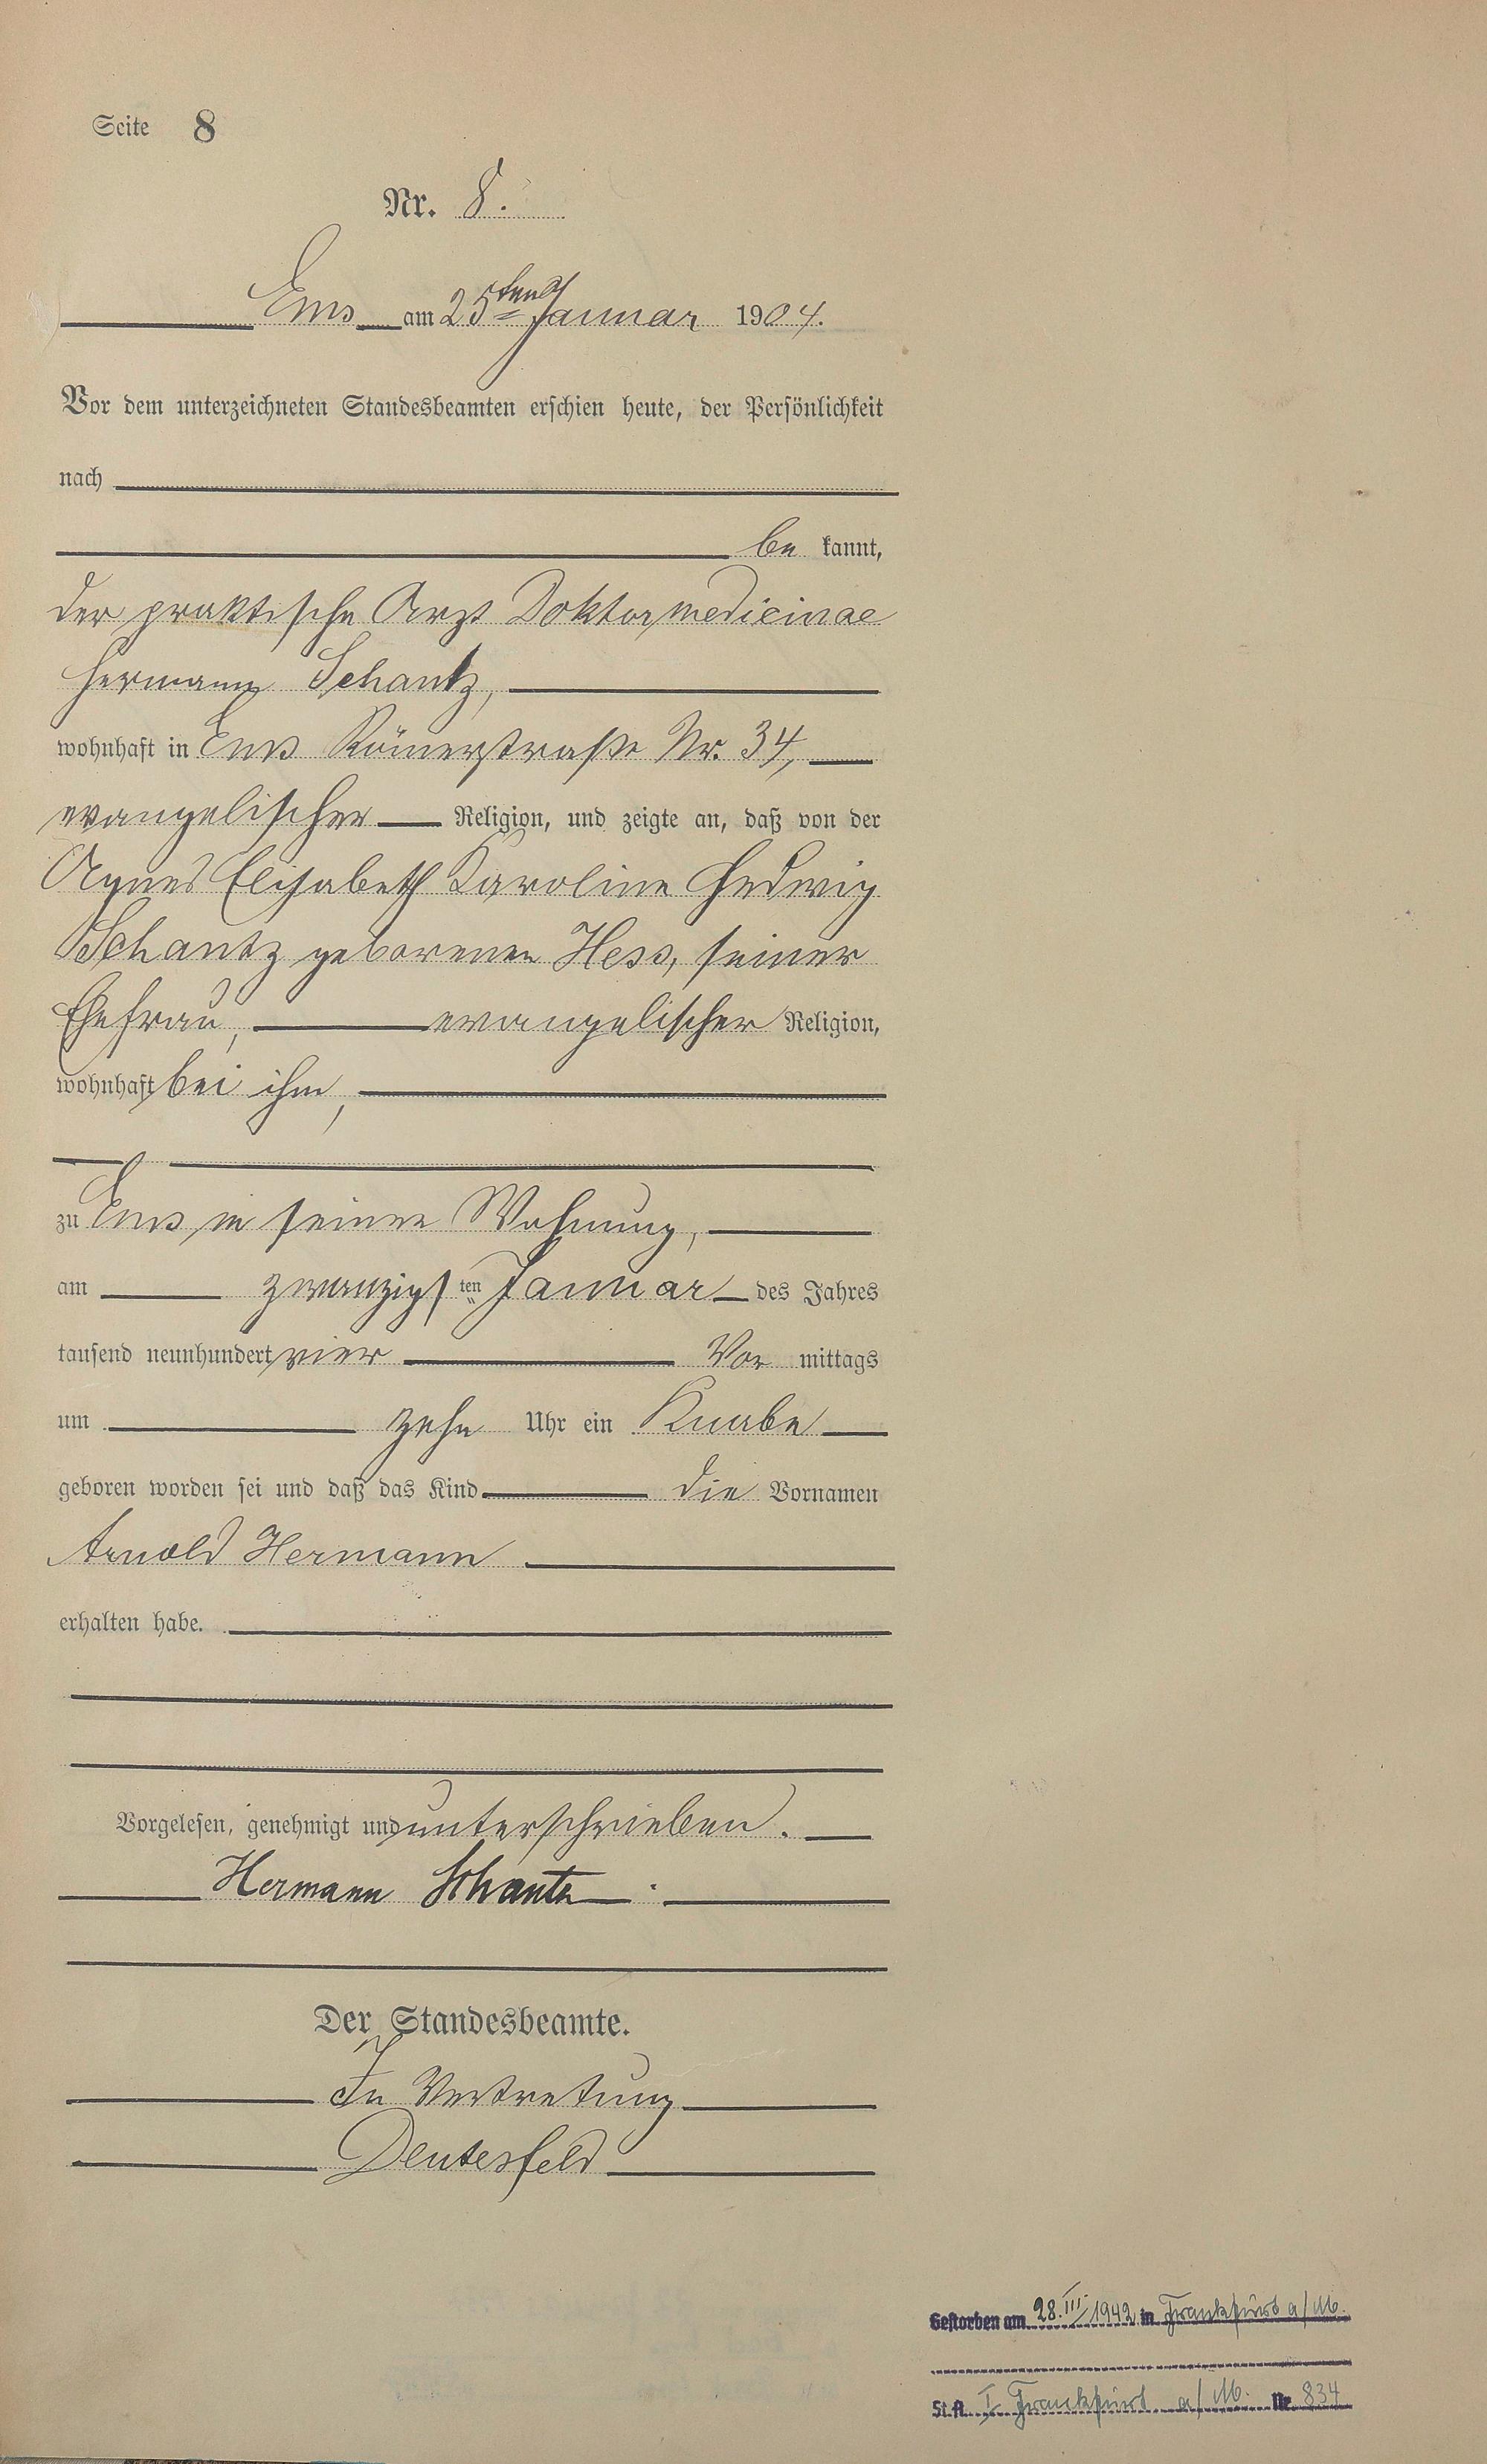 Seite 8
Nr. 8.
Ems am 25ten Januar 1904.
Vor dem unterzeichneten Standesbeamten erschien heute, der Persönlichkeit
nach
be kannt,
der praktische Arzt Doktor medicinae
Hermann Schantz,
wohnhaft in Ems Römerstraße Nr. 34,
evangelischer Religion, und zeigte an, daß von der
Agnes Elisabeth Karoline Hedwig
Schantz geborenen Hess, seiner
Ehefrau, evangelischer Religion,
wohnhaft bei ihm,
zu Ems in seiner Wohnung,
am zwanzigsten Januar des Jahres
tausend neunhundert vier Vor mittags
um zehn Uhr ein Knabe
geboren worden sei und daß das Kind die Vornamen
Arnold Hermann
erhalten habe.
Vorgelesen, genehmigt und unterschrieben.
Hermann Schantz.
Der Standesbeamte.
In Vertretung
Deutesfeld
Gestorben am 28.III.1942 in Frankfurt a/M.
St.A. I Frankfurt a/M. Nr. 834